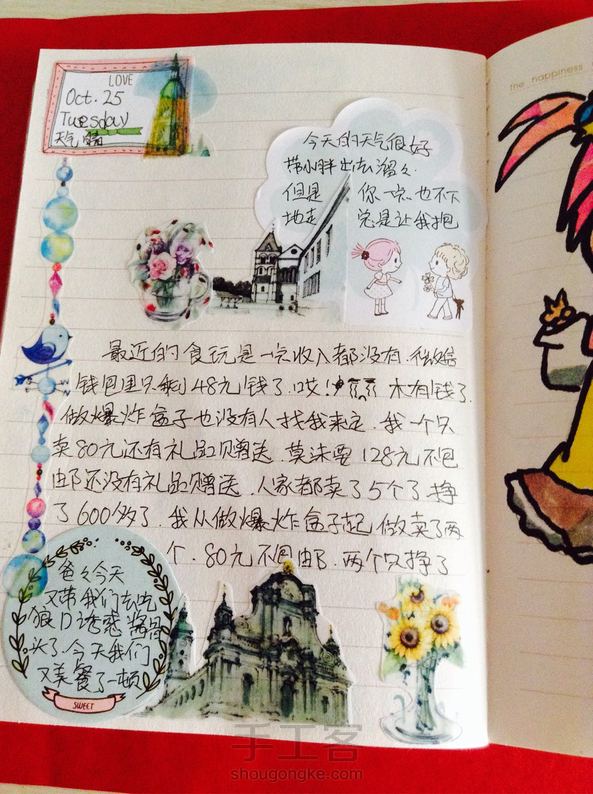 LOVE
Oct. 25
Tuesday
天气 晴
今天的天气很好
带小胖出去溜々
但是 你一点也不下
地走 总是让我抱
the happiness
最近的食玩是一点收入都没有.
钱包里只剩48元钱了.哎! 木有钱了.
做爆炸盒子也没有人找我来定.我一个只
卖80元还有礼品赠送.莫沫要128元不包
邮还没有礼品赠送.人家都卖了5个了.挣
了600多了.我从做爆炸盒子起做卖了两
个.80元不包邮.两个只挣了
爸々今天
又带我们去吃
狼口诱惑酱骨
头了.今天我们
又美餐了一顿
SWEET
手工客
shougongke.com